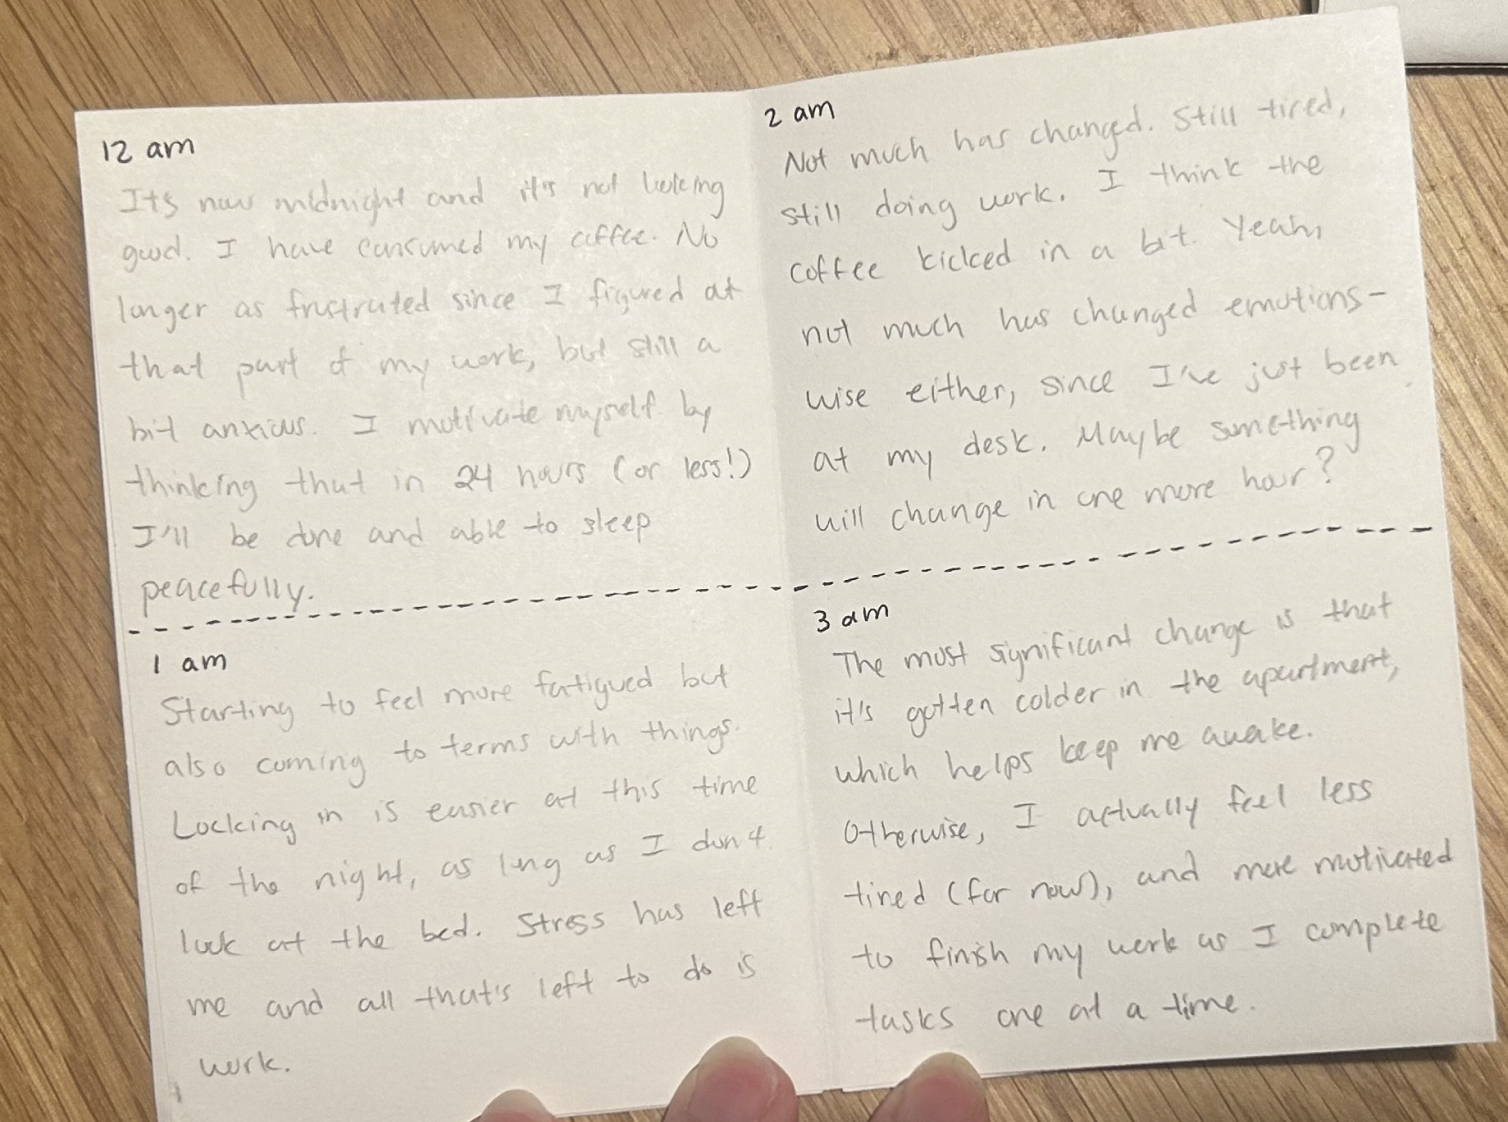 12 am
Its now midnight and it's not looking
good. I have consumed my coffee. No
longer as frustrated since I figured at
that part of my work, but still a
bit anxious. I motivate myself by
thinking that in 24 hours (or less!)
I'll be done and able to sleep
peacefully.
1 am
Starting to feel more fatigued but
also coming to terms with things.
Locking in is easier at this time
of the night, as long as I don't
look at the bed. Stress has left
me and all that's left to do is
work.
2 am
Not much has changed. Still tired,
still doing work. I think the
coffee kicked in a bit. Yeah,
not much has changed emotions-
wise either, since I've just been
at my desk. Maybe something
will change in one more hour?
3 am
The most significant change is that
it's gotten colder in the apartment,
which helps keep me awake.
Otherwise, I actually feel less
tired (for now), and more motivated
to finish my work as I complete
tasks one at a time.